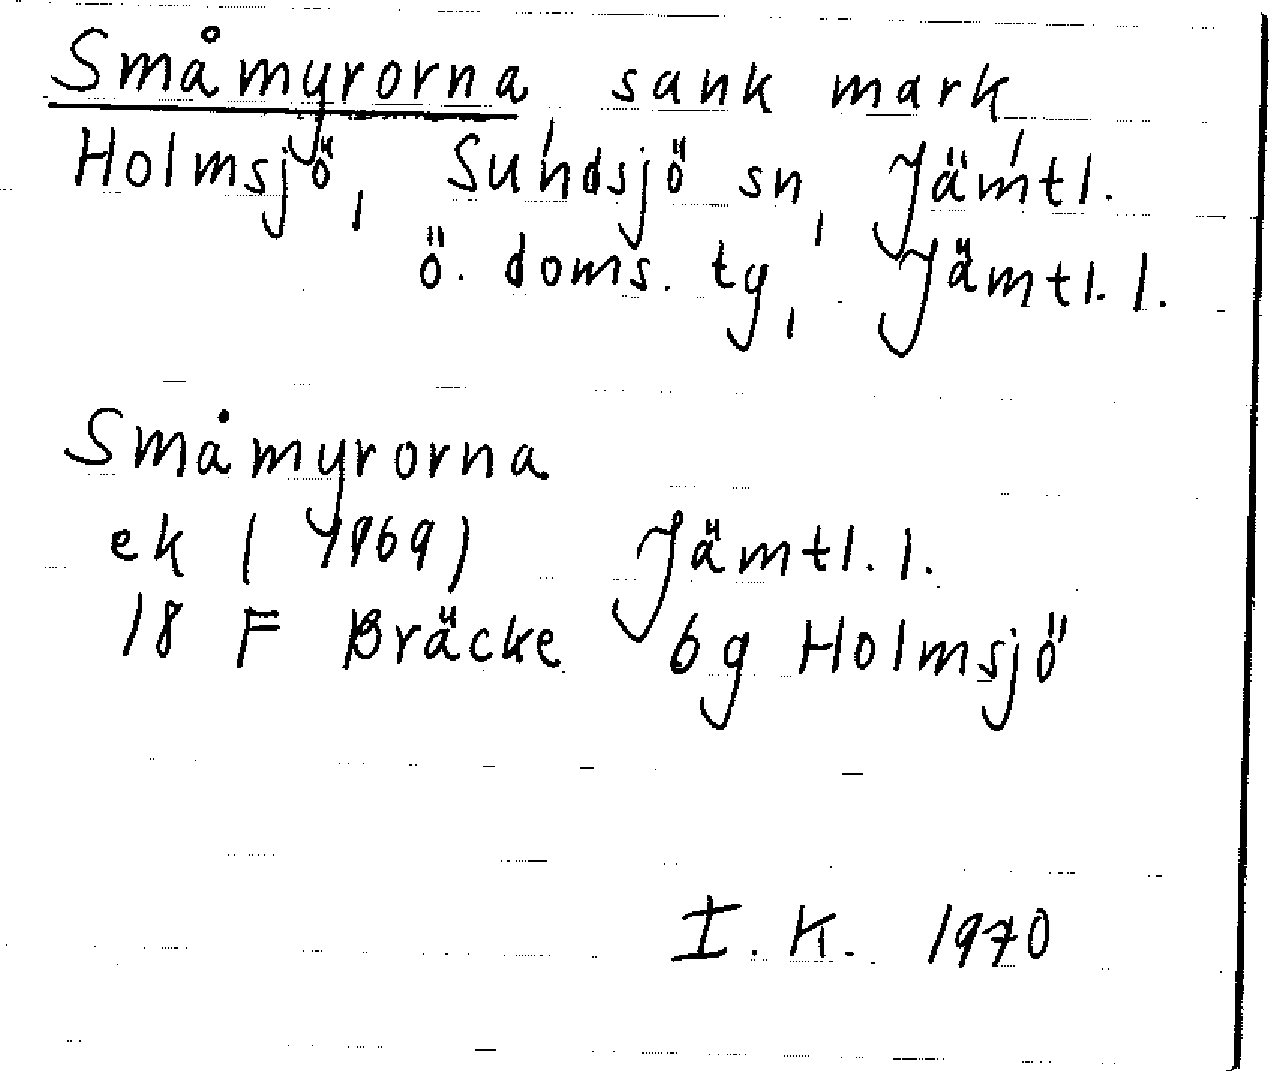 Småmyrorna, sank mark,
Holmsjö, Sundsjö sn, Jämtl.
ö. doms. tg, Jämtl. l.
Småmyrorna
ek (1969) Jämtl. l.
18 F Bräcke bg Holmsjö
I. K. 1970